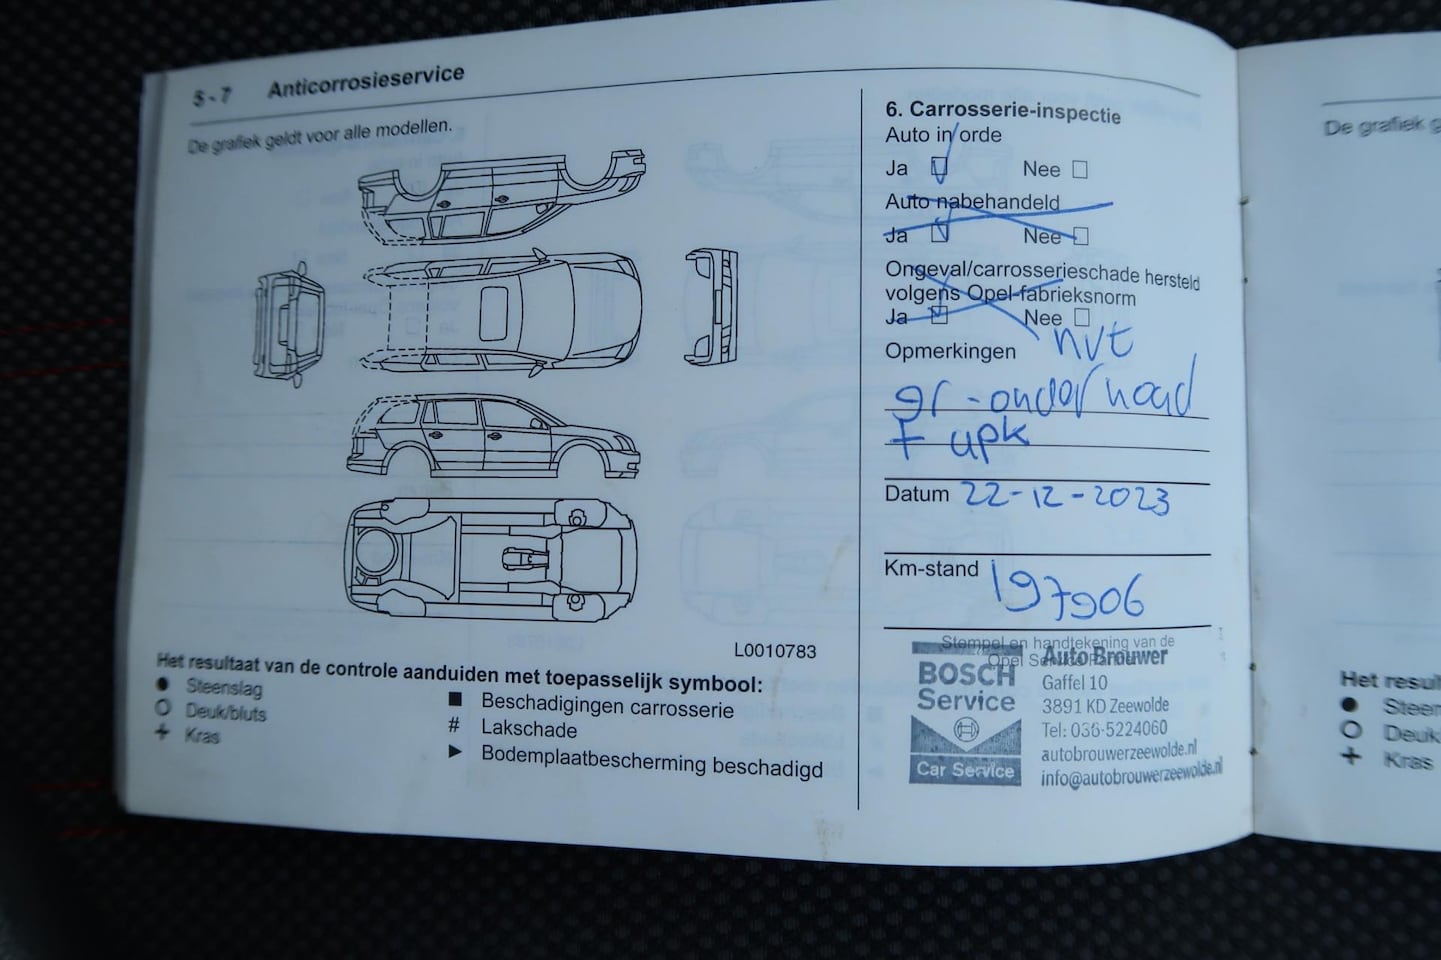 5 - 7 Anticorrosieservice
De grafiek geldt voor alle modellen.
L0010783
Het resultaat van de controle aanduiden met toepasselijk symbool:
● Steenslag
O Deuk/bluts
+ Kras
■ Beschadigingen carrosserie
# Lakschade
► Bodemplaatbescherming beschadigd
6. Carrosserie-inspectie
Auto in orde
Ja Nee
Auto nabehandeld
Ja Nee
Ongeval/carrosserieschade hersteld
volgens Opel-fabrieksnorm
Ja Nee
nvt
Opmerkingen
gr-onderhoud
+ apk
Datum 22-12-2023
Km-stand 197906
Stempel en handtekening van de
Opel Service
BOSCH
Service
Car Service
Auto Brouwer
Gaffel 10
3891 KD Zeewolde
Tel: 036-5224060
autobrouwerzeewolde.nl
info@autobrouwerzeewolde.nl
De grafiek g
Het resul
● Steen
O Deuk
+ Kras